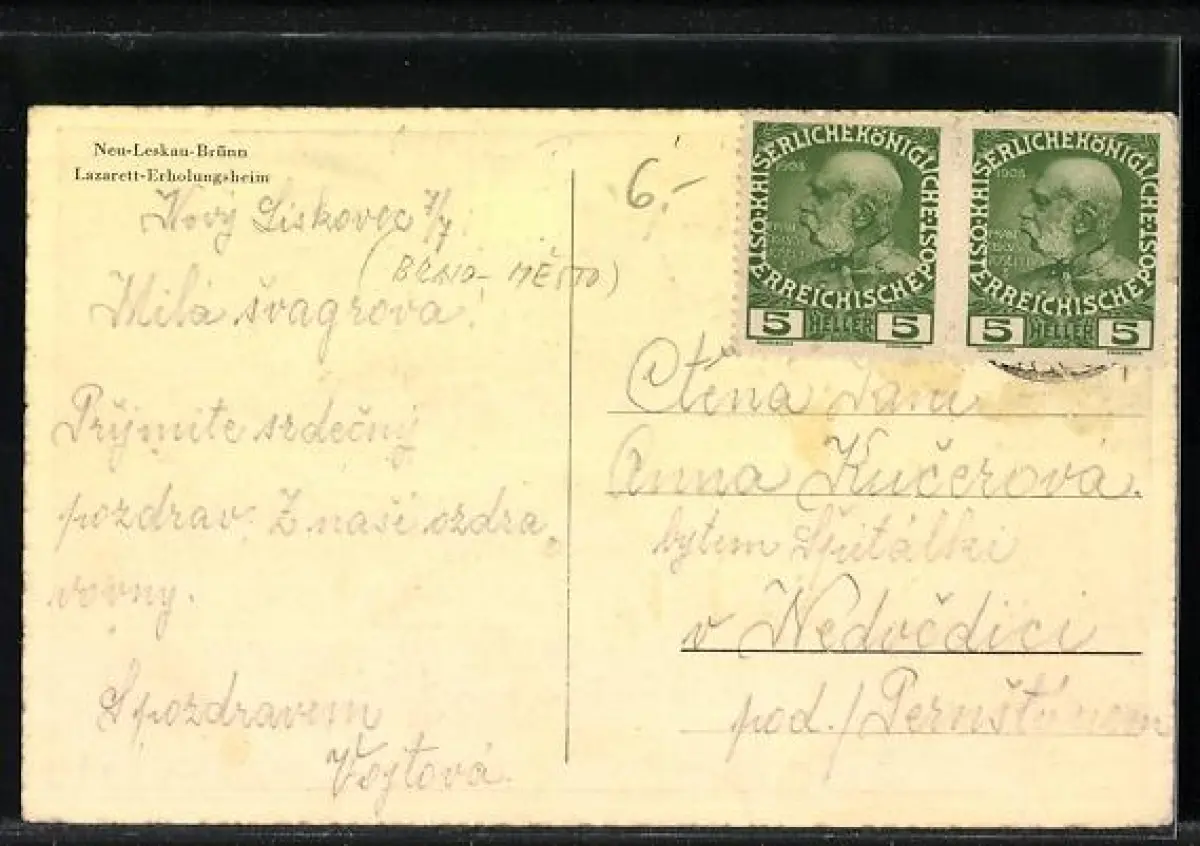 Neu-Leskau-Brünn
Lazarett-Erholungsheim
Nový Liskovec 7/7
(BRNO-MĚSTO)
Milá švagrova!
Příjmite srdečný
pozdrav. Z naši ozdra
vovny.
S pozdravem
Vojtová.
6.-
KAISERLICHEKÖNIGLICHE ÖSTERREICHISCHEPOST
1908
5 HELLER 5
KAISERLICHEKÖNIGLICHE ÖSTERREICHISCHEPOST
1908
5 HELLER 5
Ctěná Paní
Anna Kučerová.
bytem Špitálki
v Nedvědici
pod./Pernštýnem